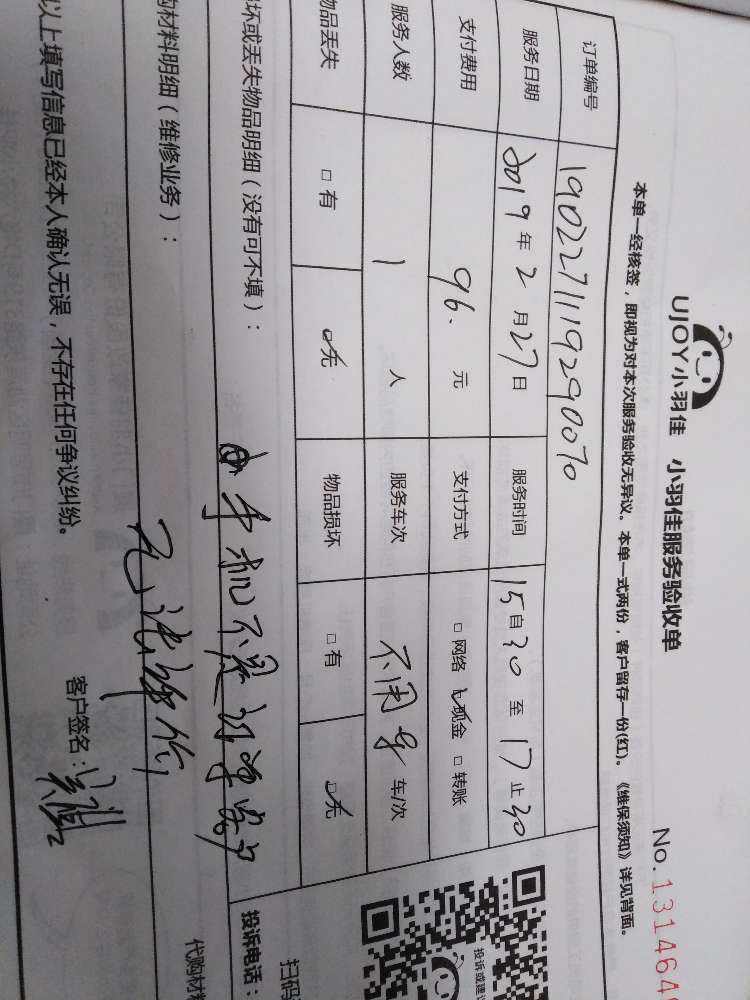 UJOY小羽佳 小羽佳服务验收单
No.131464
本单一经核签，即视为对本次服务验收无异议。本单一式两份，客户留存一份(红)。《维保须知》详见背面。
订单编号 1902271119290070
服务日期 2019年2月27日 服务时间 15自30至17止30
支付费用 96.元 支付方式 □网络 ☑现金 □转账
服务人数 1人 服务车次 不用车 车/次
物品丢失 □有 ☑无 物品损坏 □有 ☑无
坏或丢失物品明细（没有可不填）：
手机不是订单客户
购材料明细（维修业务）：
无法评价
以上填写信息已经本人确认无误，不存在任何争议纠纷。
客户签名：
投诉或建议
扫码
投诉电话：
代购材料